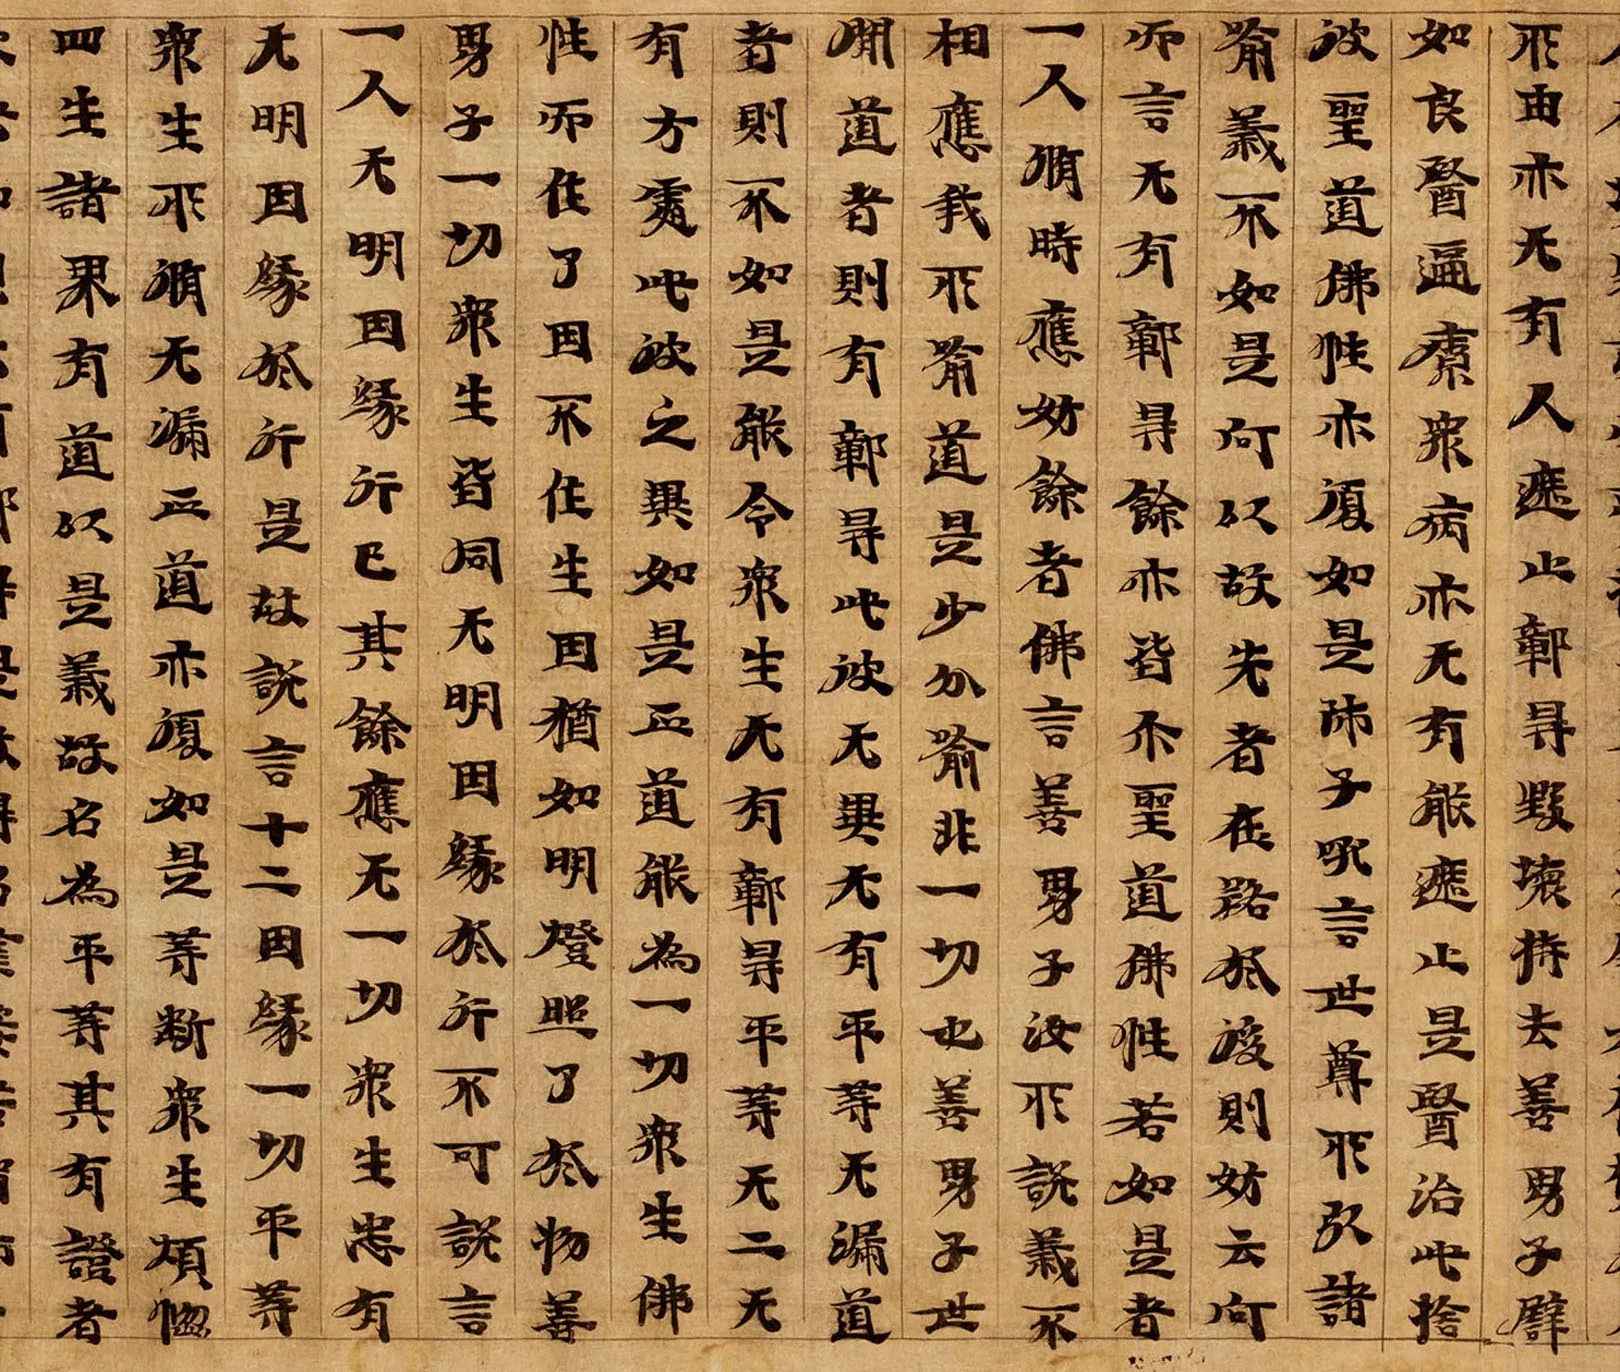 所由亦无有人遮止鄣㝵毀壞持去善男子譬
如良醫遍療衆病亦无有能遮止是醫治此捨
彼聖道佛性亦復如是師子吼言世尊所引諸
喻義不如是何以故先者在路於後則妨云何
而言无有鄣㝵餘亦皆尒聖道佛性若如是者
一人脩時應妨餘者佛言善男子汝所說義不
相應我所喻道是少分喻非一切也善男子世
閒道者則有鄣㝵此彼无異无有平等无漏道
者則不如是能令衆生无有鄣㝵平等无二无
有方處此彼之異如是正道能為一切衆生佛
性而住了因不住生因猶如明燈照了於物善
男子一切衆生皆同无明因緣於行不可說言
一人无明因緣行已其餘應无一切衆生悉有
无明因緣於行是故說言十二因緣一切平等
衆生所脩无漏正道亦復如是等斷衆生煩惱
四生諸果有道以是義故名為平等其有證者